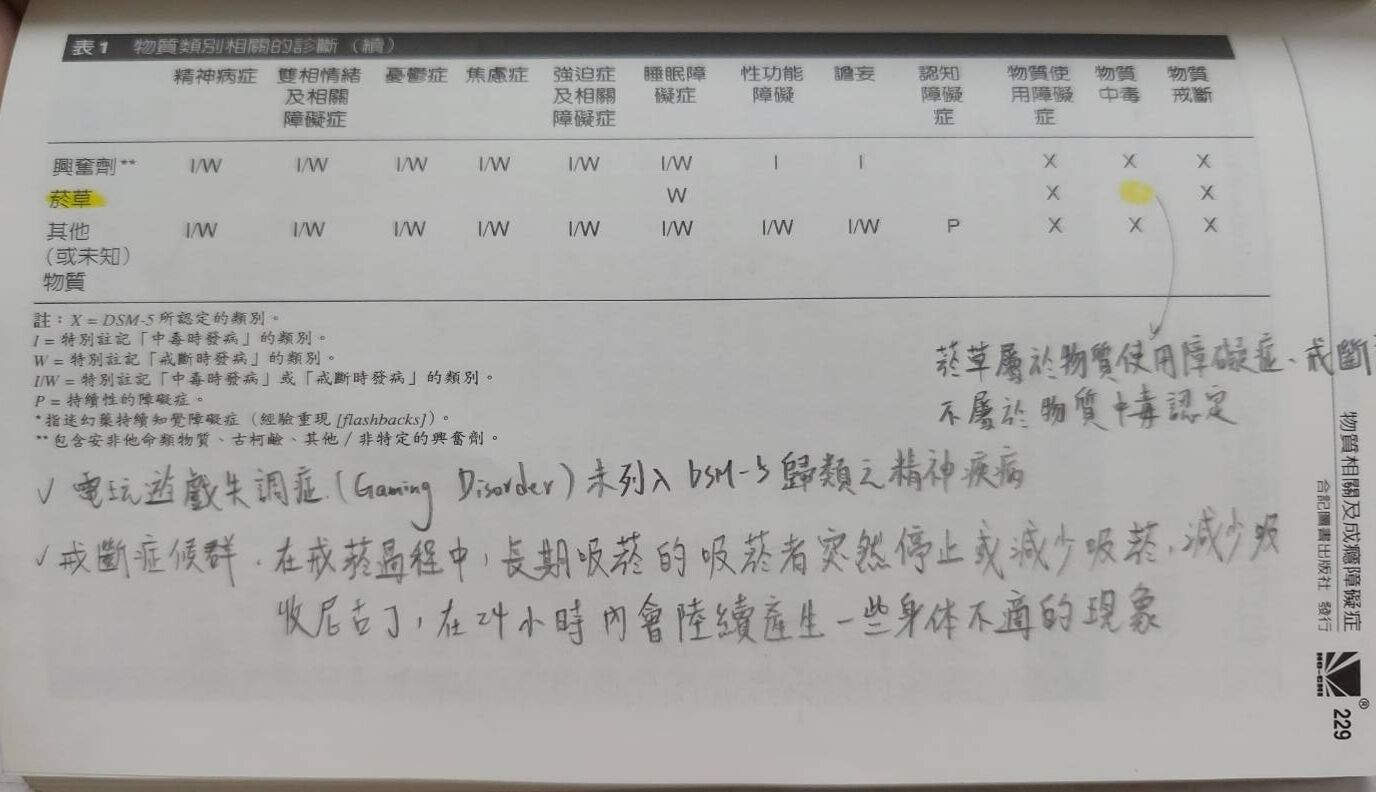 表1 物質類別相關的診斷（續）
精神病症 雙相情緒及相關障礙症 憂鬱症 焦慮症 強迫症及相關障礙症 睡眠障礙症 性功能障礙 譫妄 認知障礙症 物質使用障礙症 物質中毒 物質戒斷
興奮劑** I/W I/W I/W I/W I/W I/W I I X X X
菸草 W X X
其他（或未知）物質 I/W I/W I/W I/W I/W I/W I/W I/W P X X X
註：X = DSM-5 所認定的類別。
I = 特別註記「中毒時發病」的類別。
W = 特別註記「戒斷時發病」的類別。
I/W = 特別註記「中毒時發病」或「戒斷時發病」的類別。
P = 持續性的障礙症。
*指迷幻藥持續知覺障礙症（經驗重現 [flashbacks]）。
**包含安非他命類物質、古柯鹼、其他／非特定的興奮劑。
菸草屬於物質使用障礙症、戒斷
不屬於物質中毒認定
✓ 電玩遊戲失調症.(Gaming Disorder) 未列入 DSM-5 歸類之精神疾病
✓ 戒斷症候群. 在戒菸過程中, 長期吸菸的吸菸者突然停止或減少吸菸, 減少吸
收尼古丁, 在24小時內會陸續產生一些身体不適的現象
物質相關及成癮障礙症
合記圖書出版社 發行
HO-CHI
®
229